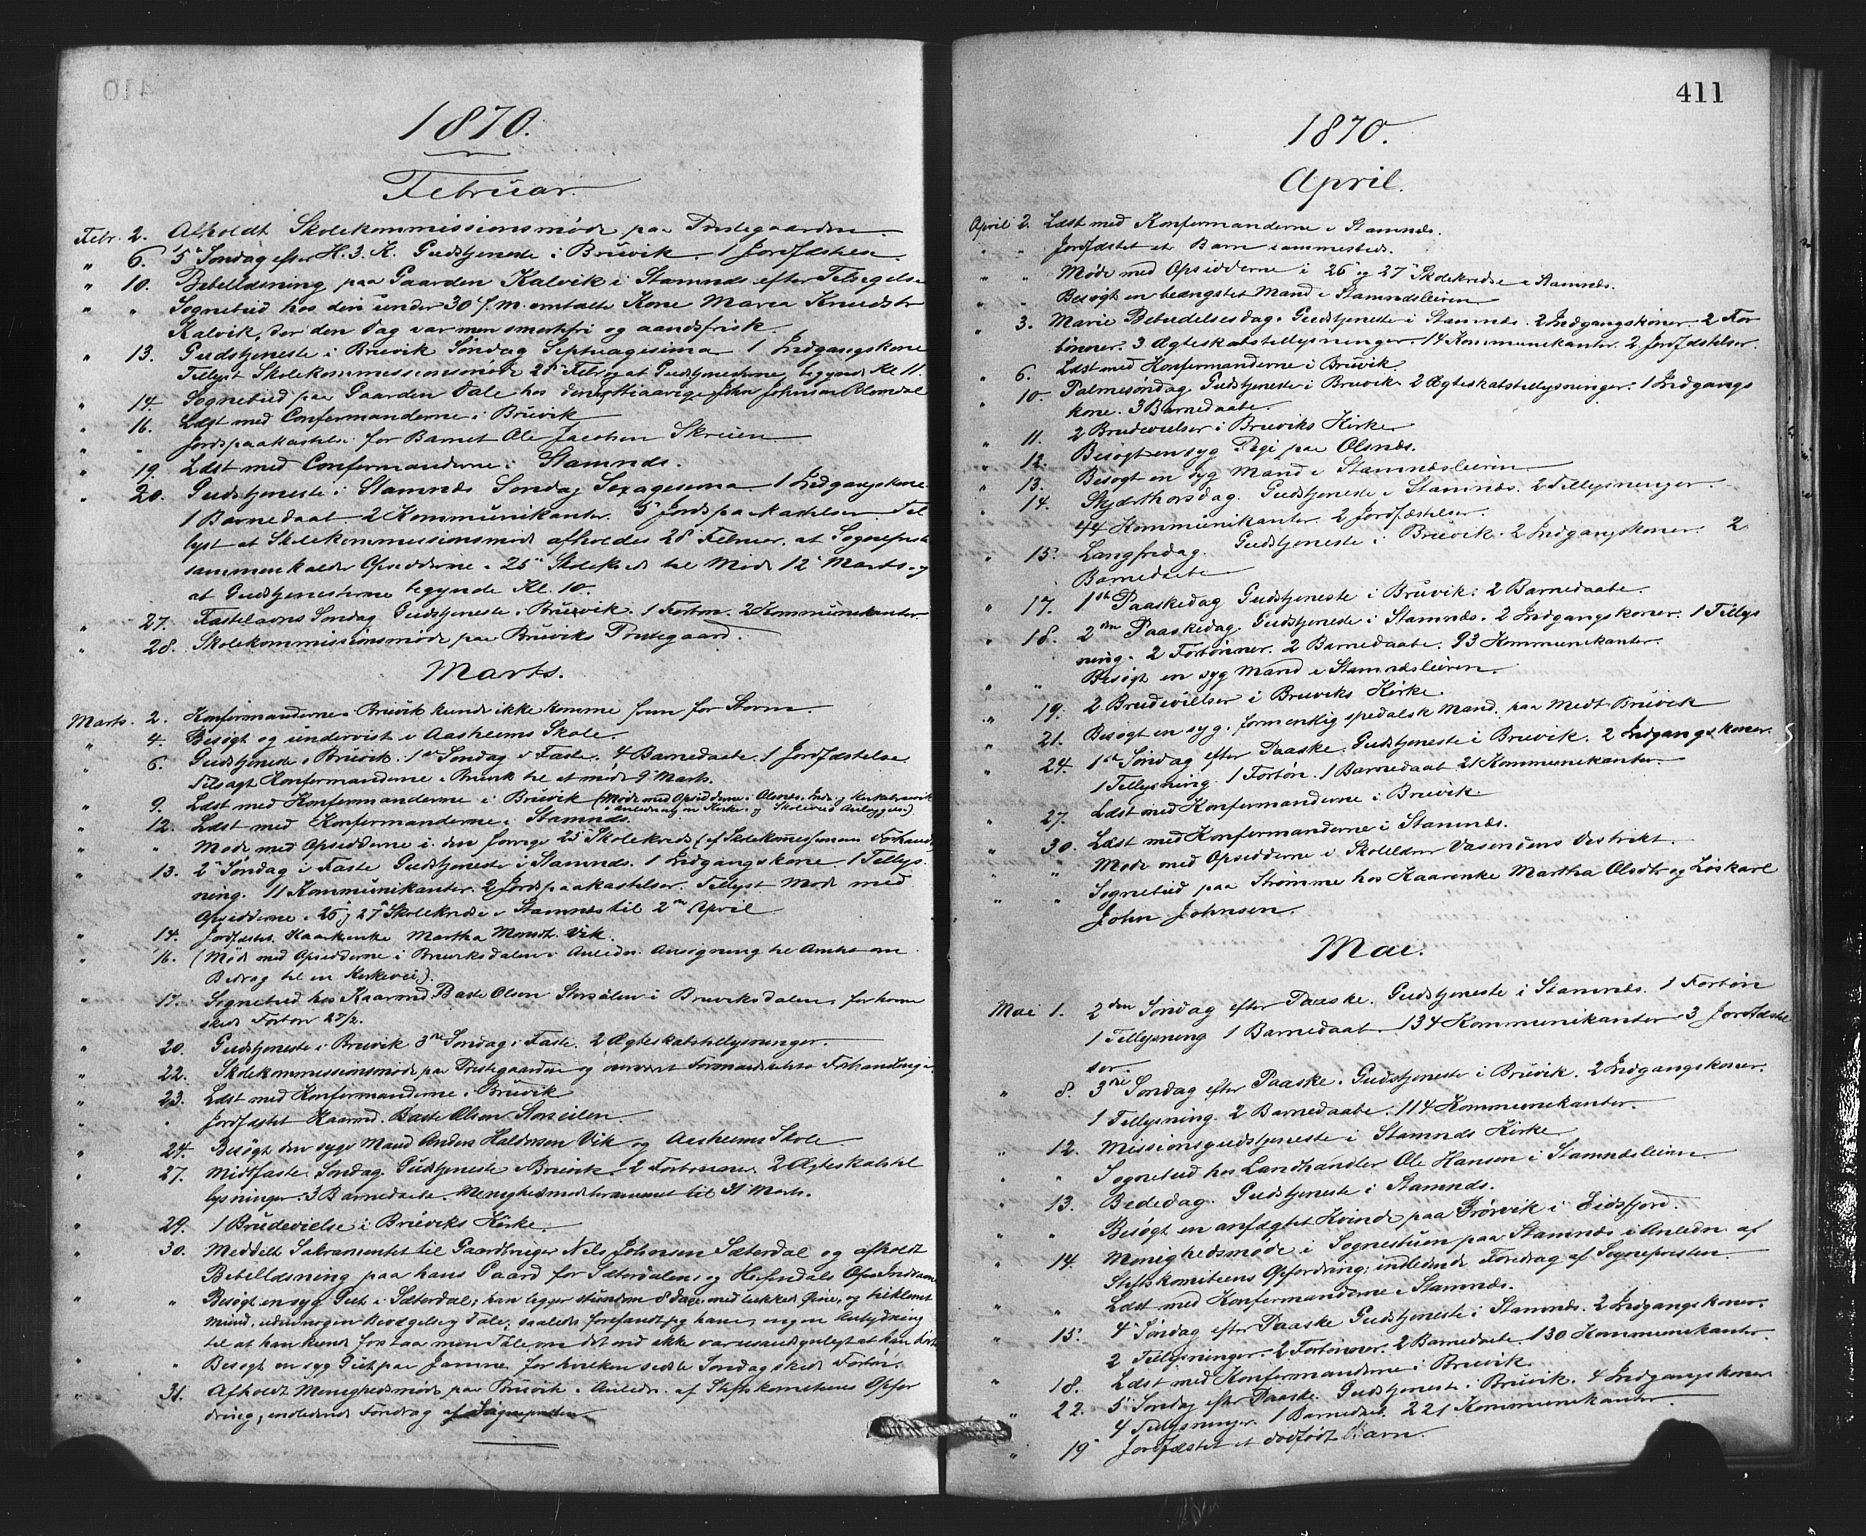 1870.
Februar.
Febr. 2. Afholdt Skolekommissionsmøde paa Præstegaarden.
" 6. 5te Søndag efter H. 3. K. Gudstjeneste i Bruvik. 1 Jordfæstelse.
" 10. Bibellæsning paa Gaarden Kalvik i Stamnæs efter Tilsigelse
" " Sognebud hos den under 30 f. m. omtalte Kone Maria Knudsdtr
Kalvik, der den Dag var mere smertefri og aandsfrisk.
" 13. Gudstjeneste i Bruvik Søndag Septuagesima 1 Indgangskone
Tillyst Skolekommissionsmøde 28de Febr og at Gudstjenesterne begynde Kl. 11.
" 14. Sognebud paa Gaarden Dale hos John Johnsen Blomdal
" 16. Læst med Confermanderne i Bruvik
" " Jordpaakastelse for Barnet Ole Jacobsen Skreien
" 19. Læst med Confermanderne i Stamnæs.
" 20. Gudstjeneste i Stamnæs Søndag Sexagesima. 1 Indgangskone.
1 Barnedaab. 2 Kommunikanter. 5 Jordpaakastelser. Til
lyst at Skolekommissionsmøde afholdes 28de Februar, at Sognepræsten
sammenkalder Opsidderne i 25de Skolekreds til Møde 12te Marts og
at Gudstjenesterne begynde Kl. 10.
" 27. Fastelavns Søndag Gudstjeneste i Bruvik. 1 Forbøn. 2 Kommunikanter
" 28. Skolekommissionsmøde paa Bruviks Præstegaard.
Marts.
Marts. 2. Konfermanderne i Bruvik kunde ikke komme frem for Storm
" 4. Besøgt og undervist i Aasheims Skole.
" 6. Gudstjeneste i Bruvik. 1ste Søndag i Faste. 4 Barnedaabe. 1 Jordfæstelse
Tilsagt Konfermanderne i Bruvik til at møde 9de Marts.
" 9. Læst med Konfermanderne i Bruvik (Møde med Opsidderne i Olsnæs
i Anledning af Kirke- og Skolevei Anlægget)
" 12. Læst med Konfermanderne i Stamnæs.
" " Møde med Opsidderne i den forrige 25de Skolekreds
" 13. 2den Søndag i Faste Gudstjeneste i Stamnæs. 1 Indgangskone. 1 Tillys-
ning. 11 Kommunikanter. 2 Jordpaakastelser. Tillyst Møde med
Opsidderne i 26 og 27de Skolekredse i Stamnæs til 2den April
" 14. Jordfæstet Kaarenke Martha Monsdt. Vik.
" 16. (Møde med Opsidderne i Bruviksdalen i Anledn. Ansøgning til Amtet om
Bidrag til en Kirkevei).
" 17. Sognebud hos Kaarmd Baste Olsen Storsélen i Bruviksdalen, for hvem
skede Forbøn 27/2.
" 20. Gudstjeneste i Bruvik 3die Søndag i Faste. 2 Ægteskabstillysninger.
" 22. Skolekommissionsmøde paa Præstegaarden og overværet Formandskabets Forhandlinger
" 23. Læst med Konfermanderne i Bruvik
" " Jordfæstet Kaarmd. Baste Olsen Storseilen
" 24. Besøgt den syge Mand Anders Haldorsen Vik og Aasheims Skole
" 27. Midtfaste Søndag Gudstjeneste i Bruvik. 2 Forbønner. 2 Ægteskabstil
lysninger. 3 Barnedaabe. Menighedsmøde berammet til 31 Marts.
" 29. 1 Brudevielse i Bruviks Kirke.
" 30. Meddelt Sakramentet til Gaardbruger Nils Johnsen Sæterdal og afholdt
Bibellæsning paa hans Gaard for Sæterdalens og Herfindals
" " Besøgt en syg Gut i Sæterdal; han ligger stundom 8 Dage med lukkede Øine, og tillukket
Mund, uden nogen Bevægelse og Tale; saaledes forefandt jeg ham, ingen Antydning
til at han kunde forstaa men Talen om det end ikke var usandsynligt at han hørte
" " Besøgt en syg Gut paa Jamne for hvilken sidste Søndag skede Forbøn.
" 31. Afholdt Menighedsmøde paa Bruvik i Anledn. af Stiftskomiteens Opfor
dring, indledende Foredrag af Sognepræsten

411
1870.
April.
April 2. Læst med Konfermanderne i Stamnæs.
" " Jordfæstet et Barn sammesteds.
" " Møde med Opsidderne i 26 og 27de Skolekredse i Stamnæs.
" " Besøgt en beængstet Mand i Stamnæsleiren
" 3. Marie Bebudelsesdag. Gudstjeneste i Stamnæs. 2 Indgangskoner. 2 For
bønner. 3 Ægteskabstillysninger. 14 Kommunikanter. 2 Jordfæstelser.
" 6. Læst med Konfermanderne i Bruvik.
" 10. Palmesøndag Gudstjeneste i Bruvik. 2 Ægteskabstillysninger. 1 Indgangs
kone. 3 Barnedaabe.
" 11. 2 Brudevielser i Bruviks Kirke
" 12. Besøgt en syg Pige paa Olsnæs.
" 13. Besøgt en syg Mand i Stamnæsleiren
" 14. Skjærthorsdag. Gudstjeneste i Stamnæs. 2 Tillysninger.
44 Kommunikanter. 2 Jordfæstelser.
" 15. Langfredag. Gudstjeneste i Bruvik. 2 Indgangskoner. 2
Barnedaabe
" 17. 1ste Paaskedag Gudstjeneste i Bruvik. 2 Barnedaabe.
" 18. 2den Paaskedag. Gudstjeneste i Stamnæs. 2 Indgangskoner. 1 Tillys
ning. 2 Forbønner. 2 Barnedaabe. 93 Kommunikanter.
" " Besøgt en syg Mand i Stamnæsleiren
" 19. 2 Brudevielser i Bruviks Kirke.
" 21. Besøgt en syg, formentlig spedalsk Mand paa Medt Bruvik
" 24. 1ste Søndag efter Paaske. Gudstjeneste i Bruvik. 2 Indgangskoner.
1 Tillysning. 1 Forbøn. 1 Barnedaab 21 Kommunikanter.
" 27. Læst med Konfermanderne i Bruvik
" 30. Læst med Konfermanderne i Stamnæs.
" " Møde med Opsidderne i Skolelærer Vasendens Destrikt.
" " Sognebud paa Strømme hos Kaarenke Martha Olsdtr og Løskarl
John Johnsen.
Mai.
Mai 1. 2den Søndag efter Paaske. Gudstjeneste i Stamnæs. 1 Forbøn
1 Tillysning 1 Barnedaab. 134 Kommunikanter 3 Jordfæstel
ser.
" 8. 3die Søndag efter Paaske. Gudstjeneste i Bruvik. 2 Indgangskoner.
1 Tillysning. 2 Barnedaabe. 114 Kommunikanter.
" 12. Missionsgudstjeneste i Stamnæs Kirke
" " Sognebud hos Landhandler Ole Hansen i Stamnæsleiren
" 13. Bededag. Gudstjeneste i Stamnæs.
" " Besøgt en anfægtet Kvinde paa Børvik i Eidsfjord.
" 14. Menighedsmøde i Sognestuen paa Stamnæs i Anledn. af
Stiftskomiteens Opfordring; indledende Foredrag af Sognepresten
" " Læst med Konfermanderne i Stamnæs.
" 15. 4de Søndag efter Paaske Gudstjeneste i Stamnæs. 2 Indgangskoner.
2 Tillysninger. 2 Forbønner. 2 Barnedaabe. 130 Kommunikanter.
" 18. Læst med Konfermanderne i Bruvik
" 22. 5te Søndag efter Paaske. Gudstjeneste i Bruvik. 4 Indgangskoner
4 Tillysninger. 1 Barnedaab. 221 Kommunikanter.
" 19. Jordfæstet et dødfødt Barn.